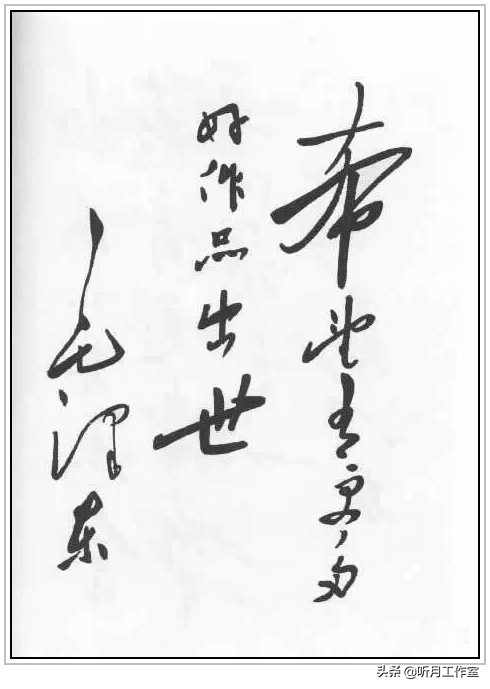 希望有更多
好作品出世
毛泽东
头条 @听月工作室